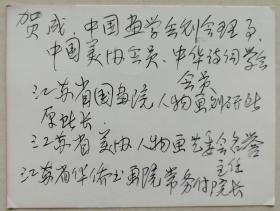 贺成，中国画学会创会理事，
中国美协会员、中华诗词学会
会员
江苏省国画院人物画创研所
原所长，
江苏省美协人物画艺委会名誉
主任
江苏省华侨书画院常务付院长